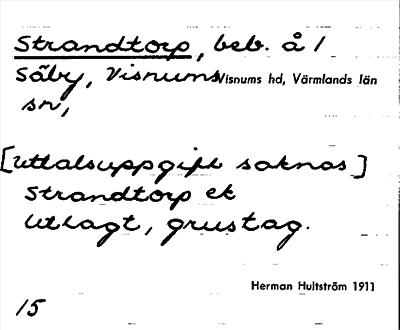 Strandtorp, beb. å /
Säby, Visnums Visnums hd, Värmlands län
sn,
[Uttalsuppgift saknas]
Strandtorp ek
Utlagt, grustag.
Herman Hultström 1911
15